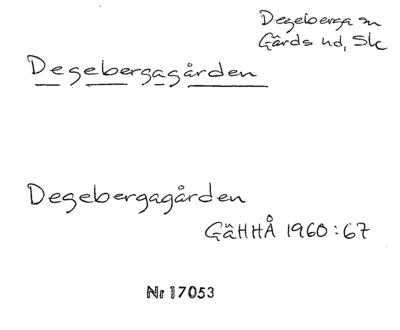 Degeberga sn
Gärds hd, Sk
Degebergagården
Degebergagården
GäHHÅ 1960:67
Nr 17053